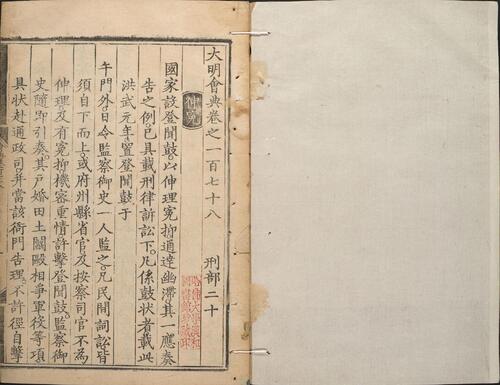 大明會典卷之一百七十八
刑部二十
伸冤
國家設登聞鼓以伸理冤抑通達幽滯其一應奏
告之例已具載刑律訴訟下凡係鼓狀者載此
洪武元年置登聞鼓于
午門外日令監察御史一人監之凡民間詞訟皆
須自下而上或府州縣省官及按察司官不為
伸理及有冤抑機密重情許擊登聞鼓監察御
史隨即引奏其戶婚田土鬬毆相爭軍役等項
具狀赴通政司并當該衙門告理不許徑自擊